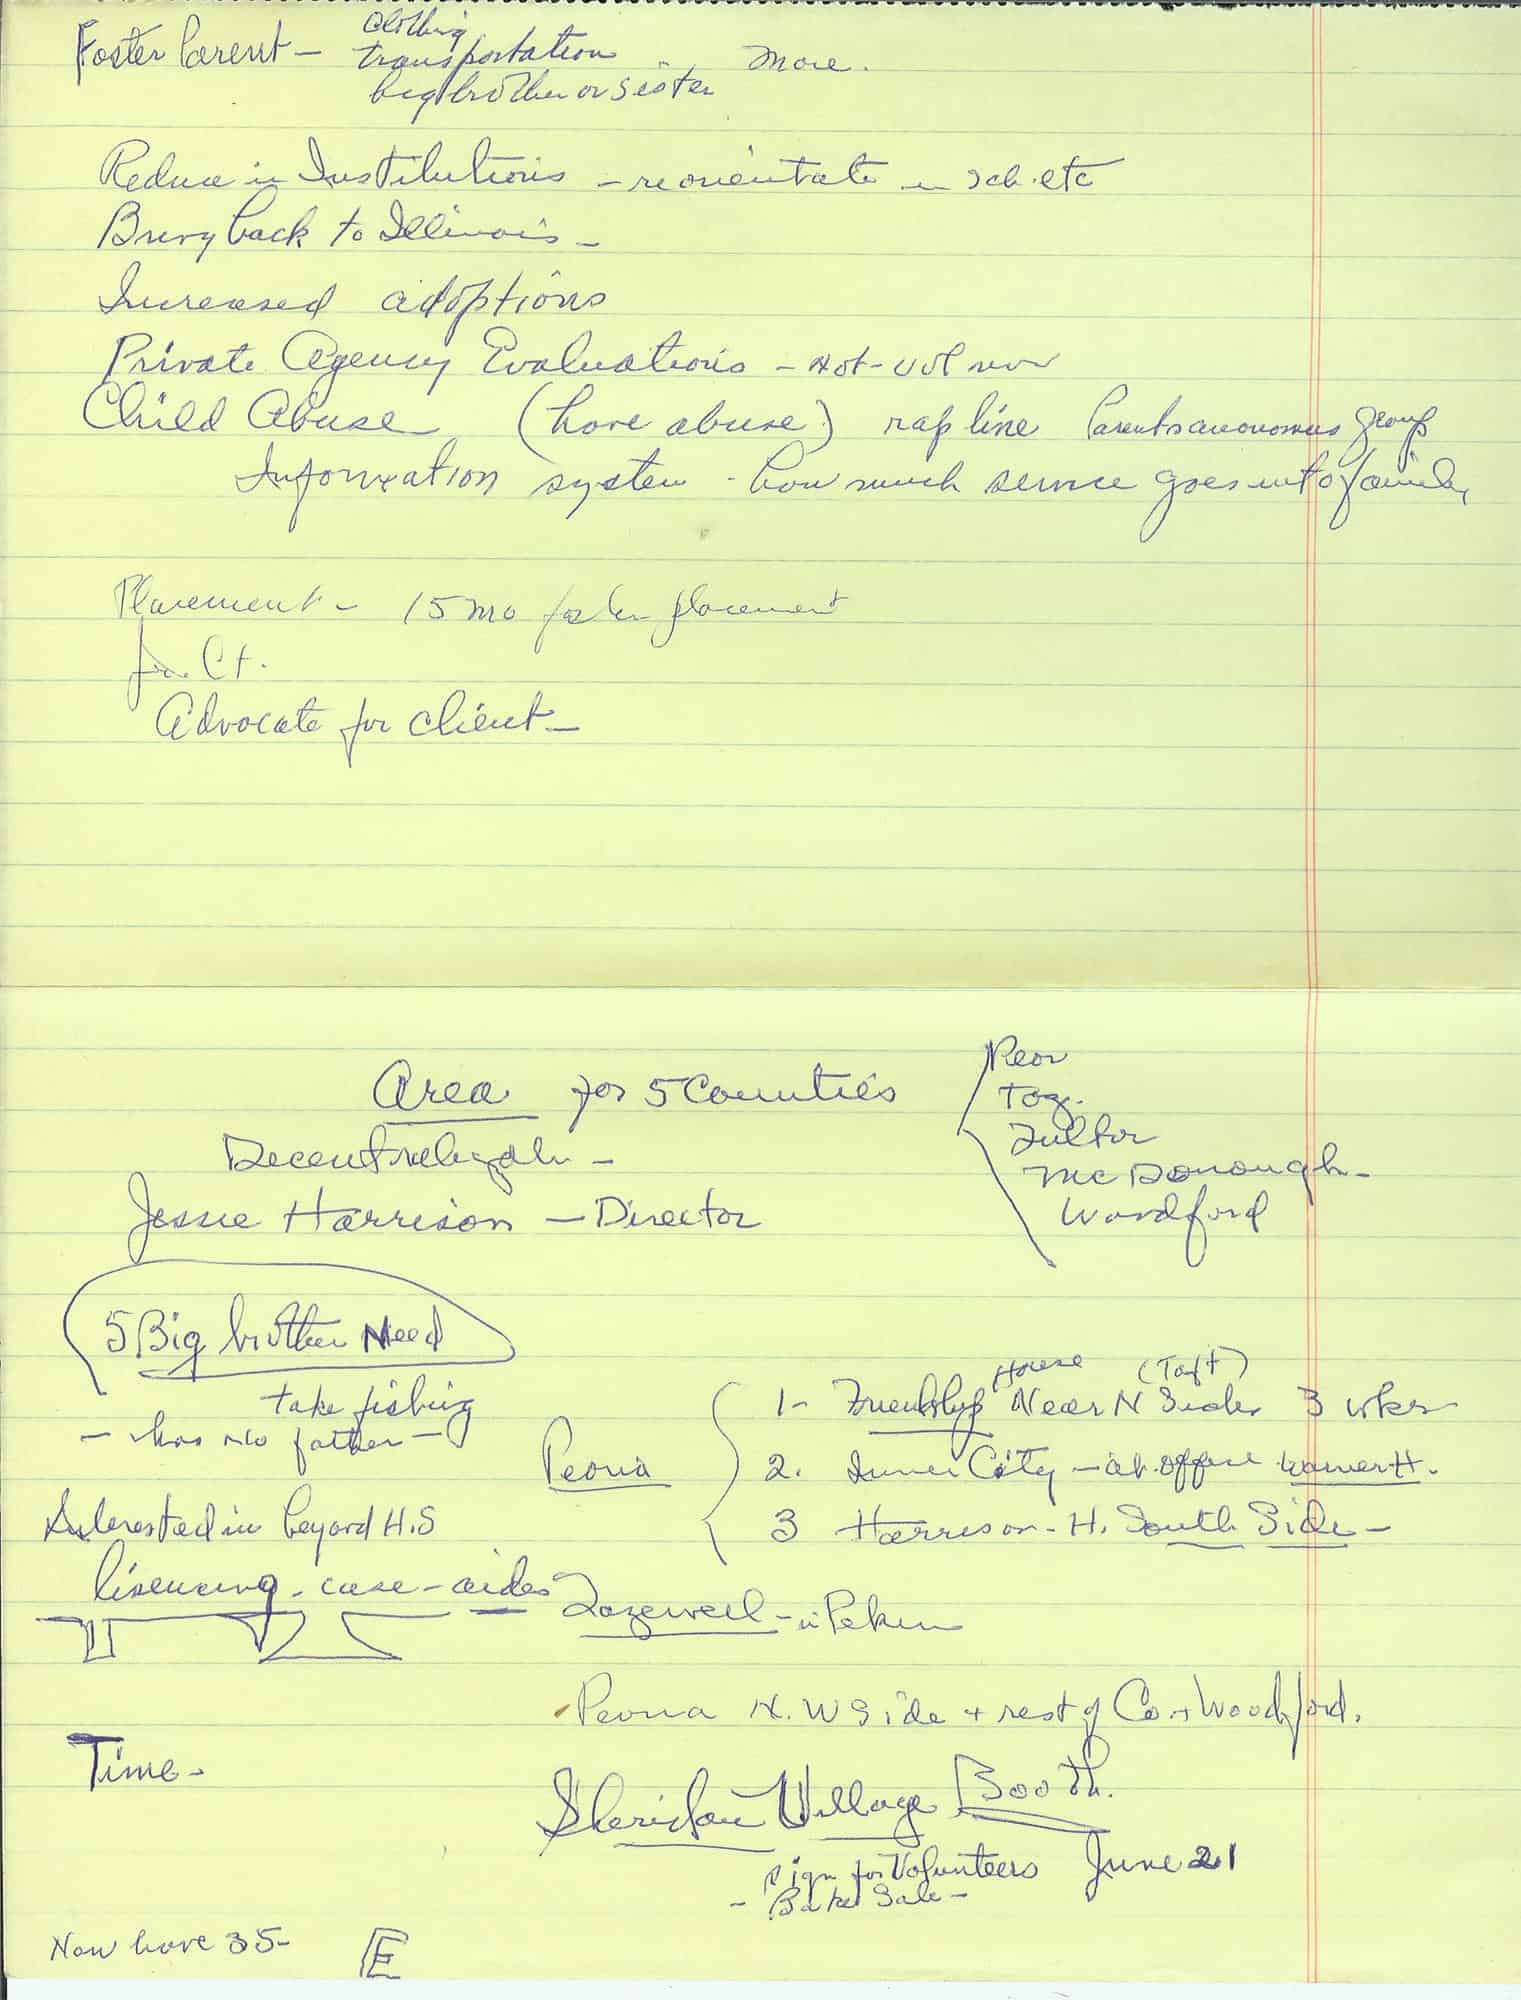 Foster Parent - clothing
transportation more.
big brother or sister
Reduce in Institutions - reorientate in sch. etc
Bring back to Illinois -
Increased adoptions
Private Agency Evaluations - Not - vol now
Child Abuse (have abuse) rap line Parents anonomus group
Information system - how much service goes into family
Placement - 15 mo foster placement
Juv. Ct.
Advocate for client -
Area for 5 Counties
Peor
Taz.
Fulton
McDonough -
Woodford
Jesse Harrison - Director
5 Big brother Need
take fishing
- has no father -
Interested in beyond H.S
lisencing - case - aides
Peoria
1- Friendship House Near N Side (Taft) 3 wks
2. Inner City - at office
3 Harrison - H. South Side -
Tazewell - in Pekin
Peoria N. W Side + rest of Co. + Woodford.
Time -
Sheridan Village Booth.
Sign for Volunteers June 21
- Bake Sale -
Now have 35 -
E